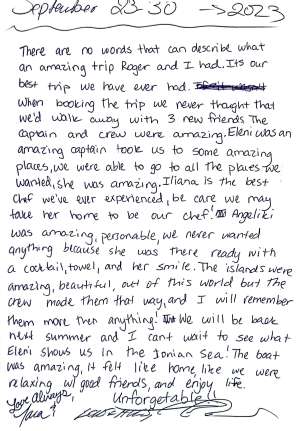 September 23-30 → 2023
There are no words that can describe what
an amazing trip Roger and I had. Its our
best trip we have ever had.
When booking the trip we never thaught that
we'd walk away with 3 new friends. The
captain and crew were amazing. Eleni was an
amazing captain took us to some amazing
places, we were able to go to all the places we
wanted, she was amazing. Iliana is the best
chef we've ever experienced, be care we may
take her home to be our chef! Angeliki
was amazing, personable, we never wanted
anything because she was there ready with
a cocktail, towel, and her smile. The islands were
amazing, beautiful, out of this world but the
crew made them that way, and I will remember
them more then anything! We will be back
next summer and I cant wait to see what
Eleni shows us in the Ionian Sea! The boat
was amazing, it felt like home, like we were
relaxing w/ good friends, and enjoy life.
Love always, Unforgetable!!